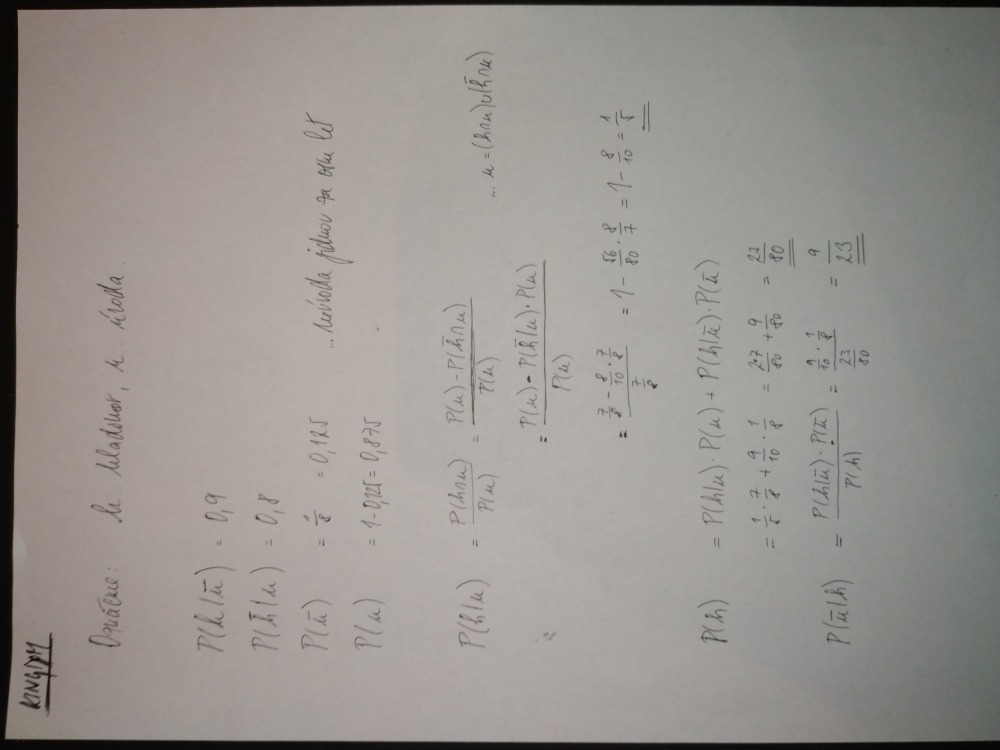 KINGDOM
Označme: h hladomor, u úroda.
P(h|ū) = 0,9
P(h̄|u) = 0,8
P(ū) = 1/8 = 0,125 ... neúroda jednou za osm let
P(u) = 1-0,125 = 0,875
P(h|u) = P(h∩u)/P(u) = (P(u) - P(h̄∩u))/P(u) ... u = (h∩u)∪(h̄∩u)
= (P(u) - P(h̄|u)·P(u))/P(u)
= (7/8 - 8/10·7/8)/(7/8) = 1 - 56/80·8/7 = 1 - 8/10 = 1/5
P(h) = P(h|u)·P(u) + P(h|ū)·P(ū)
= 1/5·7/8 + 9/10·1/8 = 2·7/80 + 9/80 = 23/80
P(ū|h) = (P(h|ū)·P(ū))/P(h) = (9/10·1/8)/(23/80) = 9/23